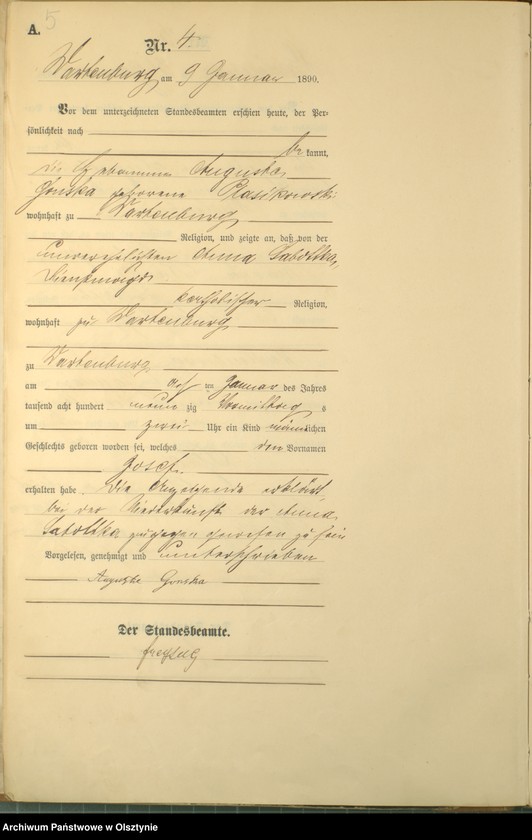 A. 5
Nr. 4.
Wartenburg am 9 Januar 1890.
Vor dem unterzeichneten Standesbeamten erschien heute, der Per-
sönlichkeit nach
be kannt,
die Hebamme Auguste
Gonska geborene
wohnhaft zu Wartenburg
Religion, und zeigte an, daß von der
unverehelichten Anna Sabottka,
Dienstmagd
katholischer Religion,
wohnhaft zu Wartenburg
zu Wartenburg
am ten Januar des Jahres
tausend acht hundert neun zig Vormittag s
um zwei Uhr ein Kind männlichen
Geschlechts geboren worden sei, welches den Vornamen
Josef
erhalten habe. Die Anzeigende erklärt
bei der Niederkunft der Anna
Sabottka zugegen gewesen zu sein
Vorgelesen, genehmigt und unterschrieben
Auguste Gonska
Der Standesbeamte.
Freytag
Archiwum Państwowe w Olsztynie